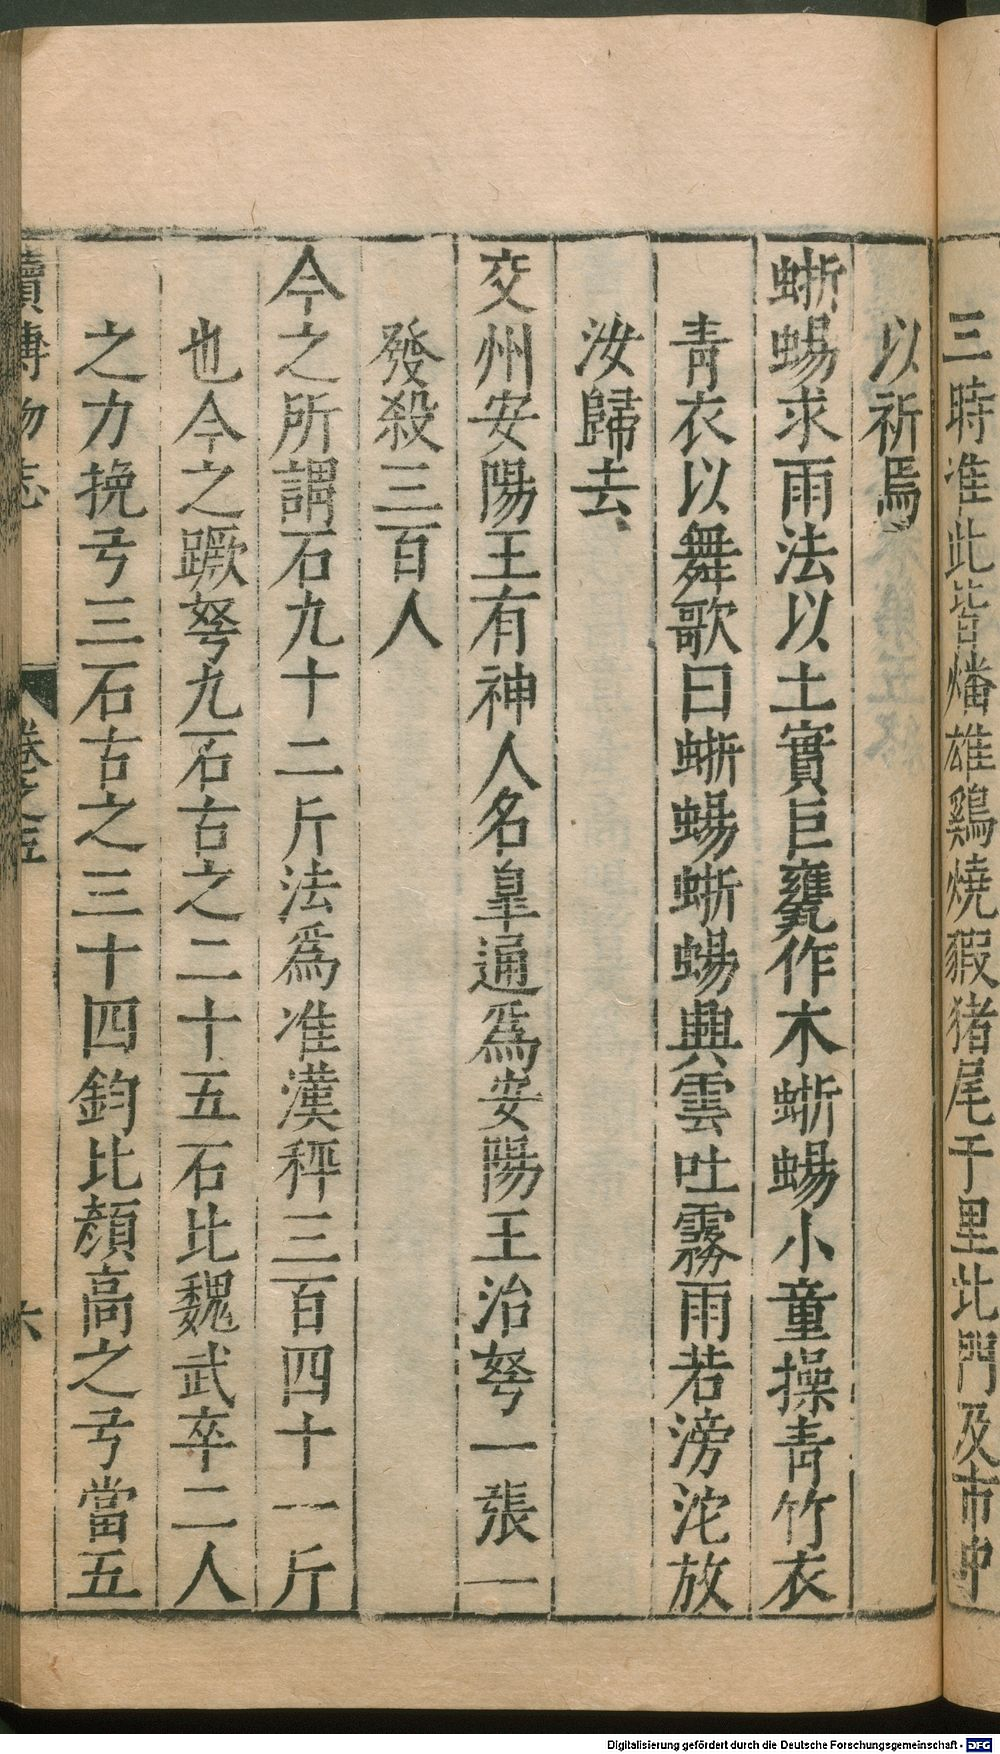 三時准此皆燔雄鷄燒豭猪尾于里北門及市中
以祈焉
蜥蜴求雨法以土實巨甕作木蜥蜴小童操青竹衣
青衣以舞歌曰蜥蜴蜥蜴興雲吐霧雨若滂沱放
汝歸去
交州安陽王有神人名臯通爲安陽王治弩一張一
發殺三百人
今之所謂石九十二斤法爲准漢秤三百四十一斤
也今之蹶弩九石古之二十五石比魏武卒二人
之力挽弓三石古之三十四鈞比顏高之弓當五
續博物志 卷之五 六
Digitalisierung gefördert durch die Deutsche Forschungsgemeinschaft - DFG